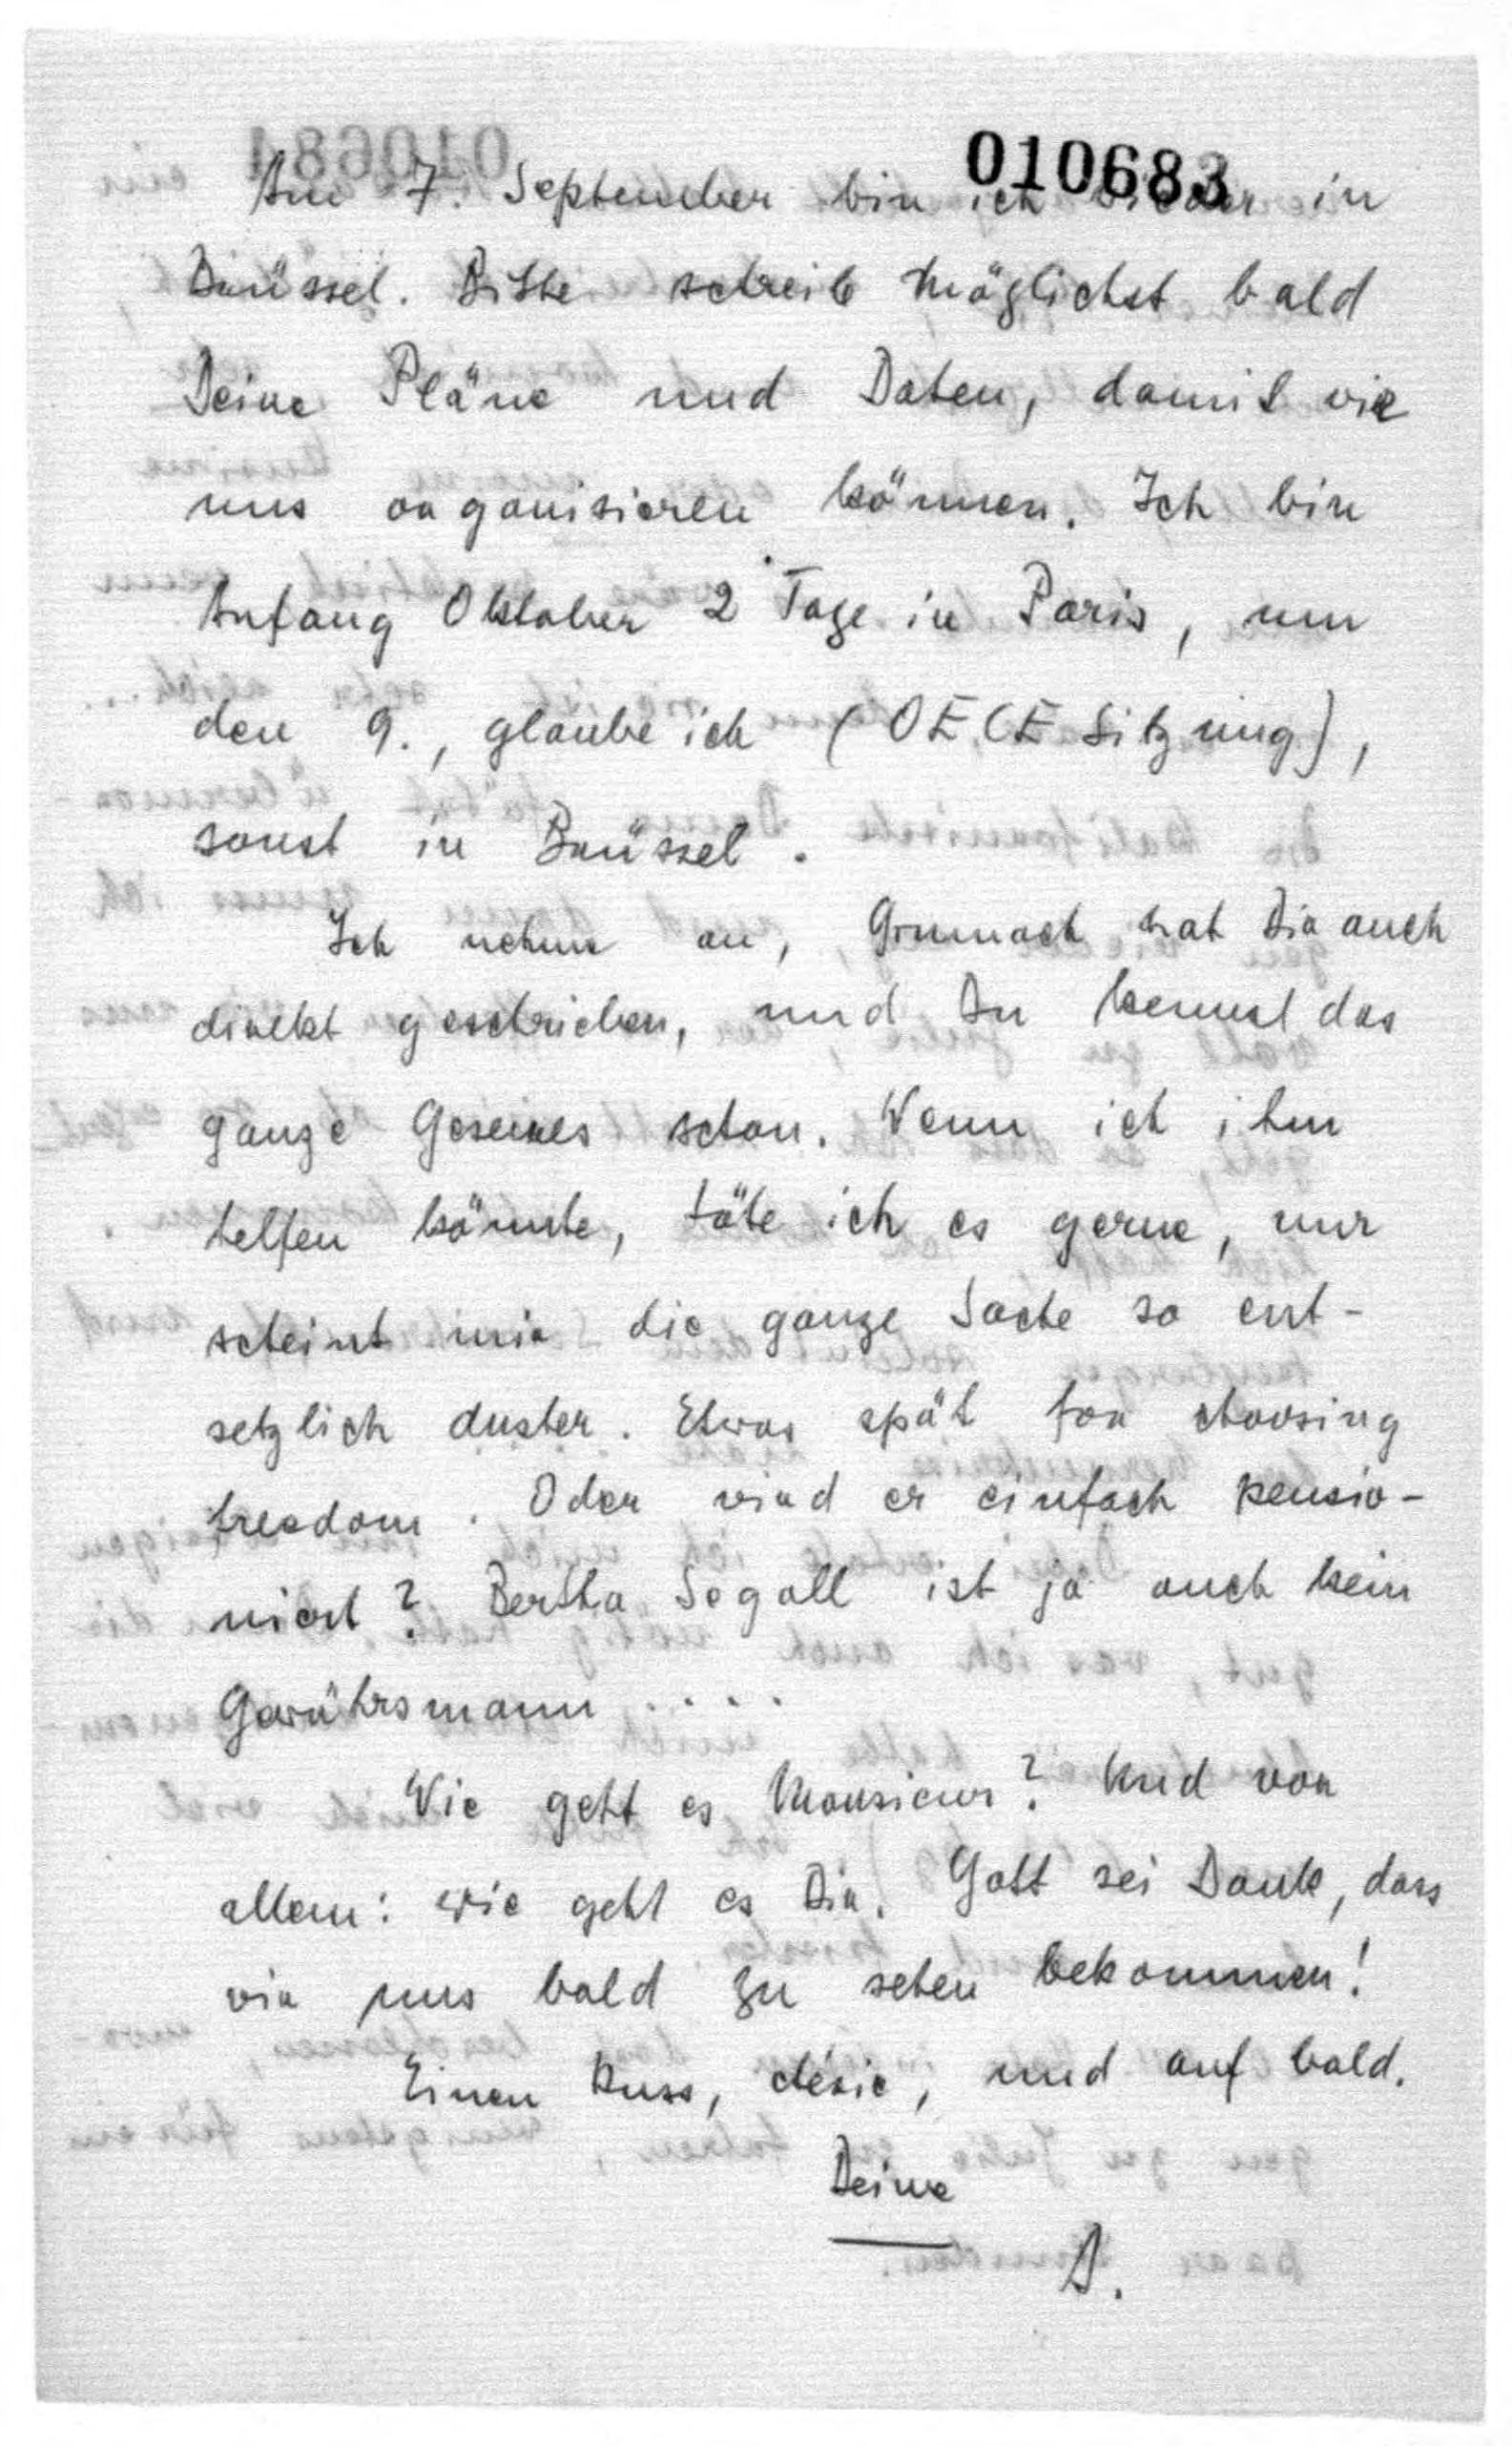 010683
Am 7. September bin ich wieder in
Brüssel. Bitte schreib möglichst bald
Deine Pläne und Daten, damit wir
uns organisieren können. Ich bin
Anfang Oktober 2 Tage in Paris, um
den 9., glaube ich (OECE Sitzung),
sonst in Brüssel.
Ich nehme an, Grumach hat Dir auch
direkt geschrieben, und Du kennst das
ganze Geseires schon. Wenn ich ihm
helfen könnte, täte ich es gerne, nur
scheint mir die ganze Sache so ent-
setzlich duster. Etwas spät for choosing
freedom. Oder wird er einfach pensio-
niert? Bertha Segall ist ja auch kein
Gewährsmann ....
Wie geht es Monsieur? Und vor
allem: wie geht es Dir. Gott sei Dank, dass
wir uns bald zu sehen bekommen!
Einen Kuss, chérie, und auf bald.
Deine